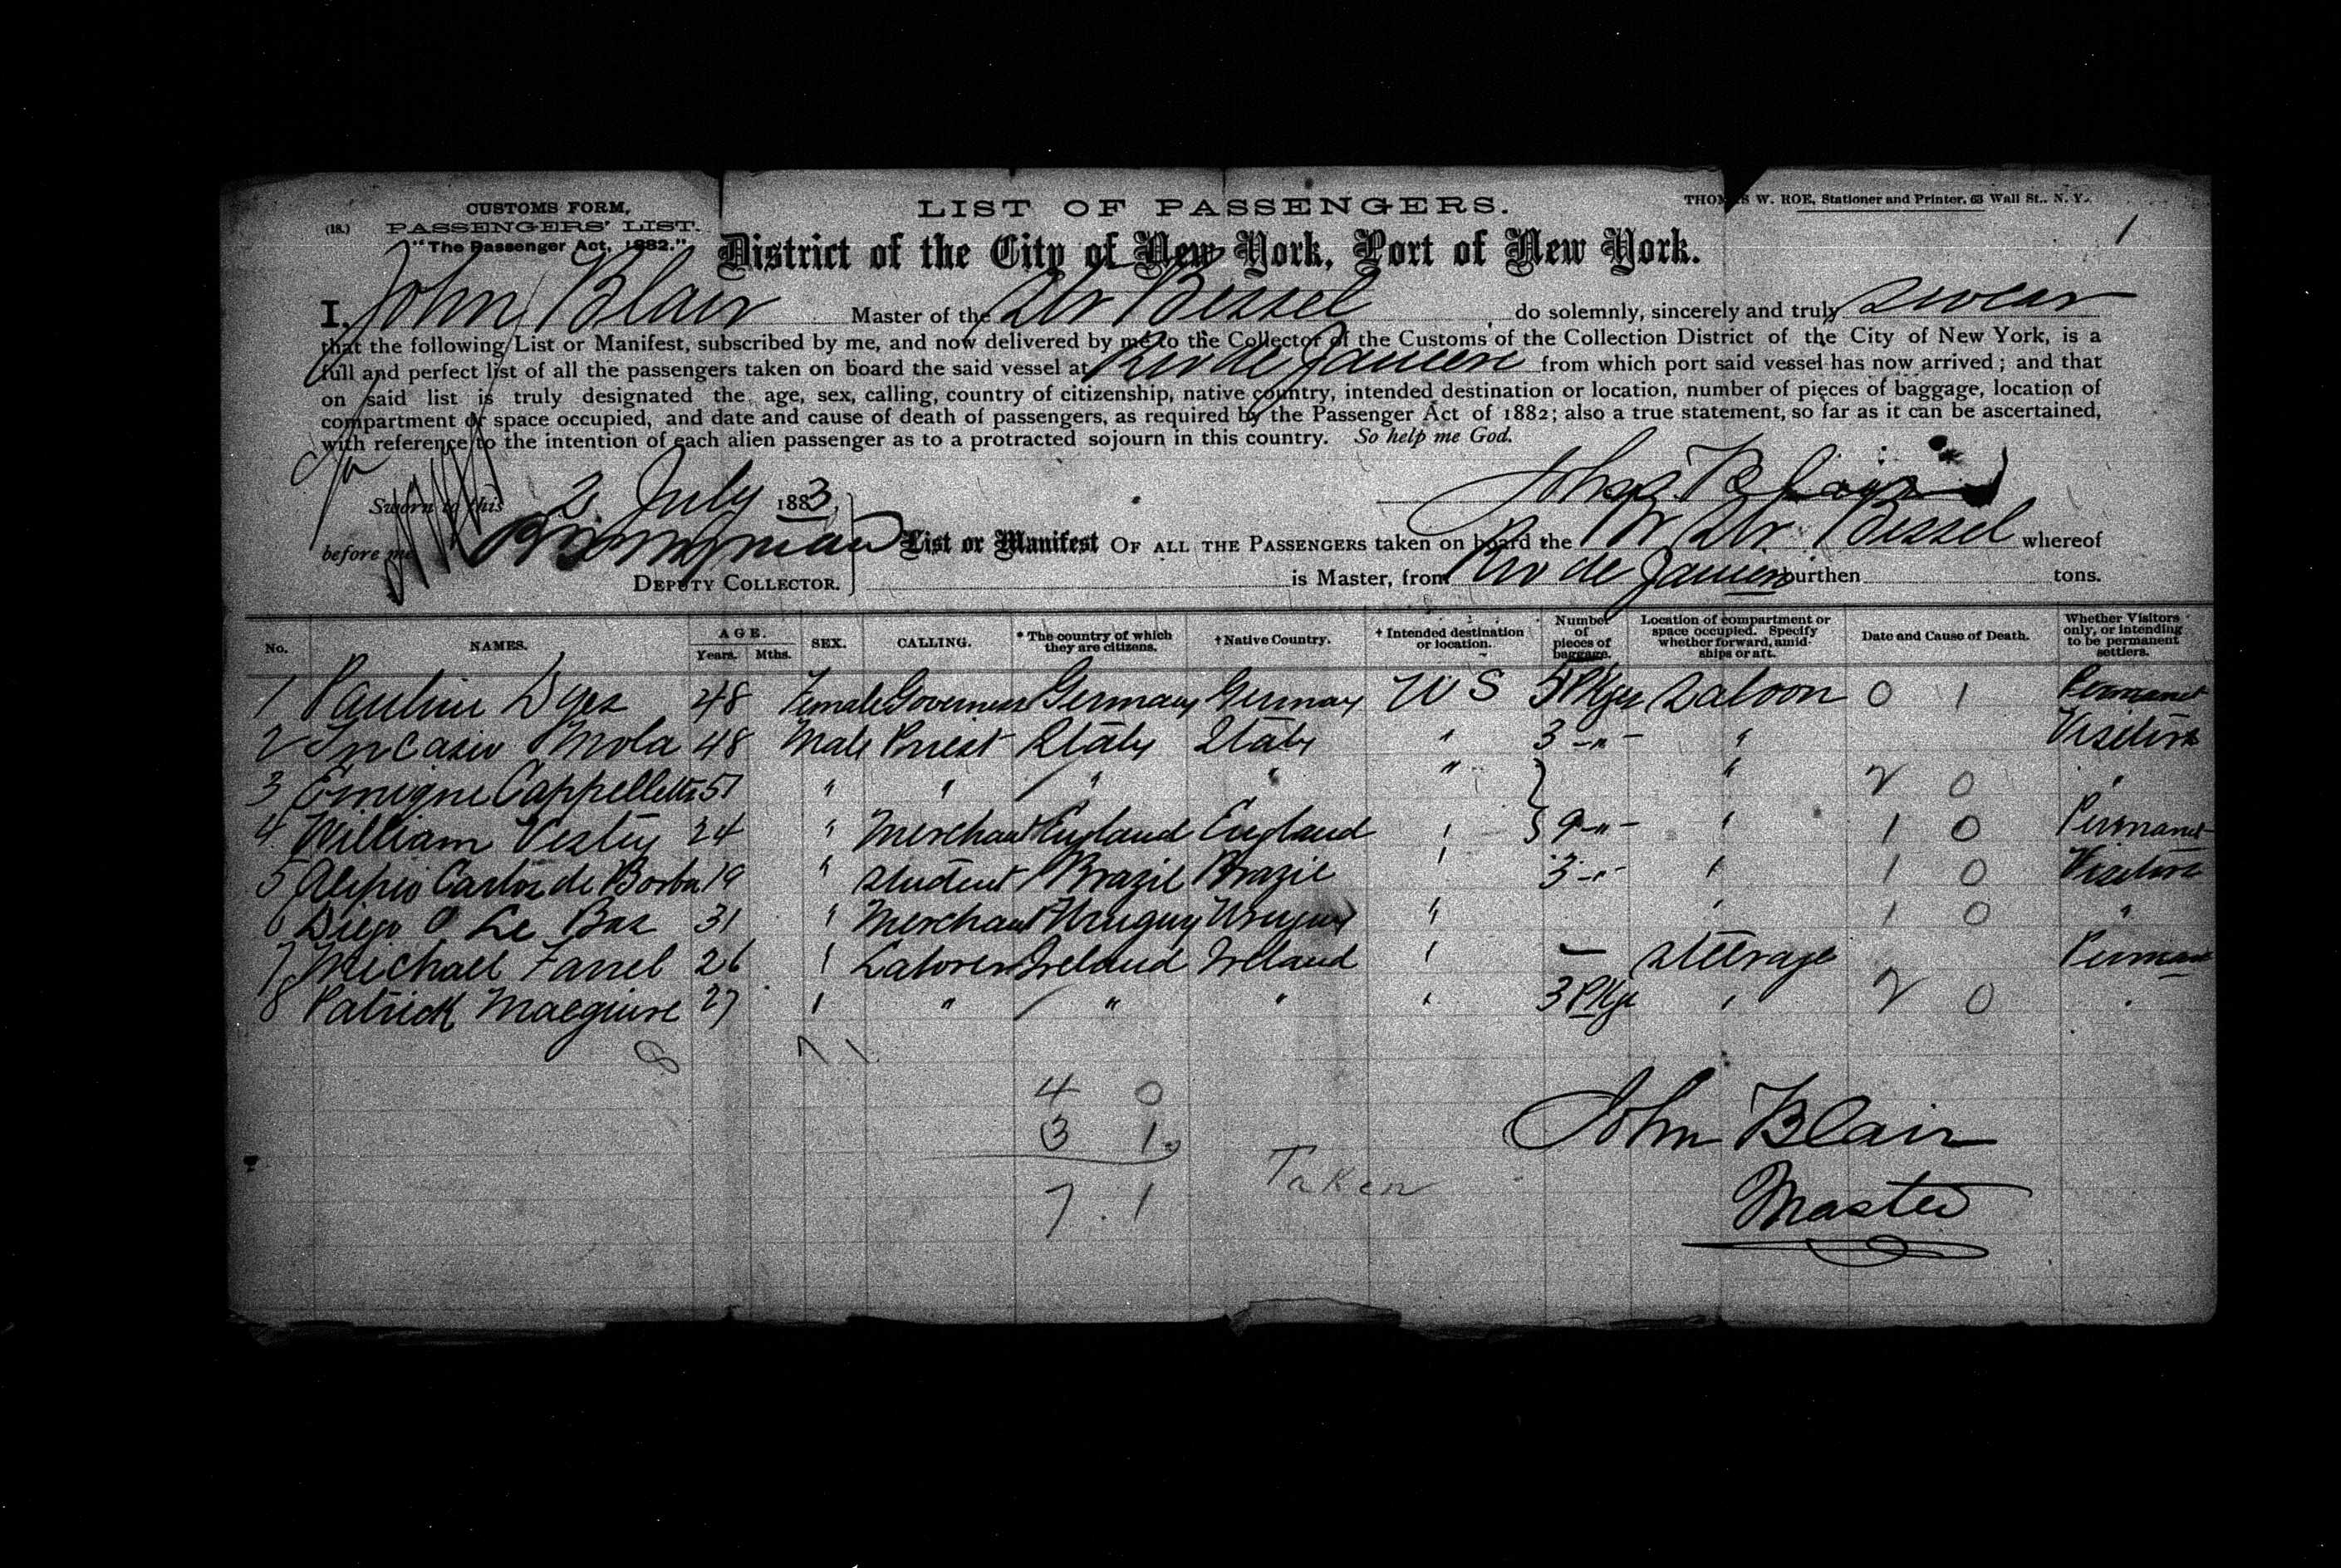 CUSTOMS FORM,
(18.) PASSENGERS' LIST.
"The Passenger Act, 1882."
LIST OF PASSENGERS.
THOMAS W. ROE, Stationer and Printer, 63 Wall St., N. Y.
1
District of the City of New York, Port of New York.
I, John Blair Master of the Str Bessel do solemnly, sincerely and truly swear
that the following List or Manifest, subscribed by me, and now delivered by me to the Collector of the Customs of the Collection District of the City of New York, is a
full and perfect list of all the passengers taken on board the said vessel at Rio de Janeiro from which port said vessel has now arrived; and that
on said list is truly designated the age, sex, calling, country of citizenship, native country, intended destination or location, number of pieces of baggage, location of
compartment or space occupied, and date and cause of death of passengers, as required by the Passenger Act of 1882; also a true statement, so far as it can be ascertained,
with reference to the intention of each alien passenger as to a protracted sojourn in this country. So help me God.
Sworn to this 2 July 1883
John Blair
before me
DEPUTY COLLECTOR.
List or Manifest OF ALL THE PASSENGERS taken on board the Br Str Bessel whereof
is Master, from Rio de Janeiro burthen tons.
No. NAMES. AGE. Years. Mths. SEX. CALLING. * The country of which they are citizens. † Native Country. † Intended destination or location. Number of pieces of baggage. Location of compartment or space occupied. Specify whether forward, amidships or aft. Date and Cause of Death. Whether Visitors only, or intending to be permanent settlers.
1 Pauline 48 Female Governess Germany Germany U S 5 Pkges Saloon 0 1 Permanent
2 Mola 48 Male Priest Italy Italy " 3 -"- " Visitors
3 Cappelletti 51 " " " " " " 2 0 "
4 William Vestey 24 " Merchant England England " 9 -"- " 1 0 Permanent
5 Alipio Carlos de Borba 19 " Student Brazil Brazil " 3 -"- " 1 0 Visitors
6 Diego Le Bas 31 " Merchant Uruguy Uruguy " " 1 0 "
7 Michael Farrel 26 " Laborer Ireland Ireland " — Steerage Permanent
8 Patrick Macguire 27 " " " " " 3 Pkgs " 2 0 "
8 7 1
4 0
3 1
7 1
Taken
John Blair
Master